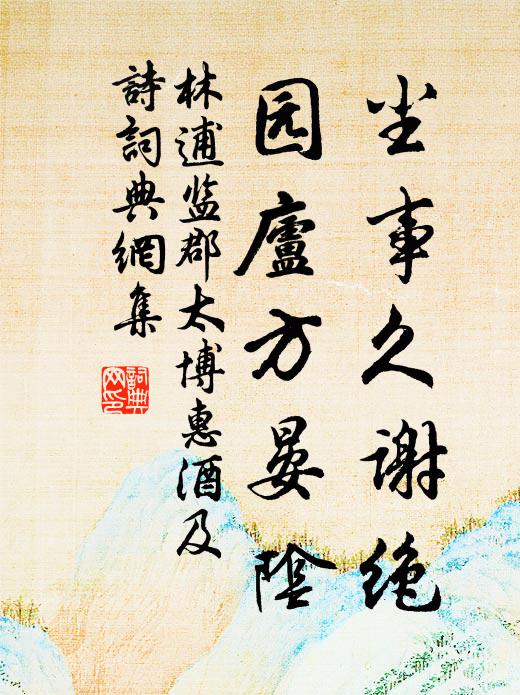 尘事久谢绝
园廬方晏陰
林逋监郡太博惠酒及
詩詞典網集
詞典網印